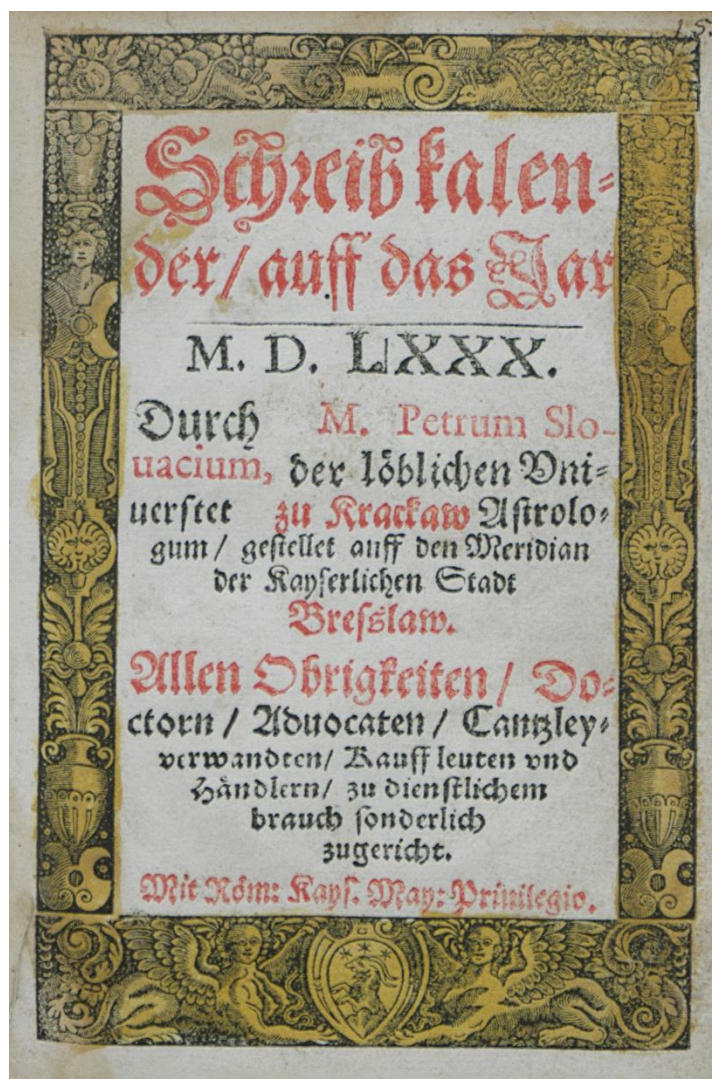 Schreibkalen⸗
der/ auff das Jar
M. D. LXXX.
Durch M. Petrum Slo-
uacium, der löblichen Vni⸗
uerstet zu Krackaw Astrolo⸗
gum/ gestellet auff den Meridian
der Kayserlichen Stadt
Bresslaw.
Allen Obrigkeiten/ Do⸗
ctorn/ Aduocaten/ Cantzley⸗
verwandten/ Kauffleuten vnd
Händlern/ zu dienstlichem
brauch sonderlich
zugericht.
Mit Röm: Kays. May: Priuilegio.